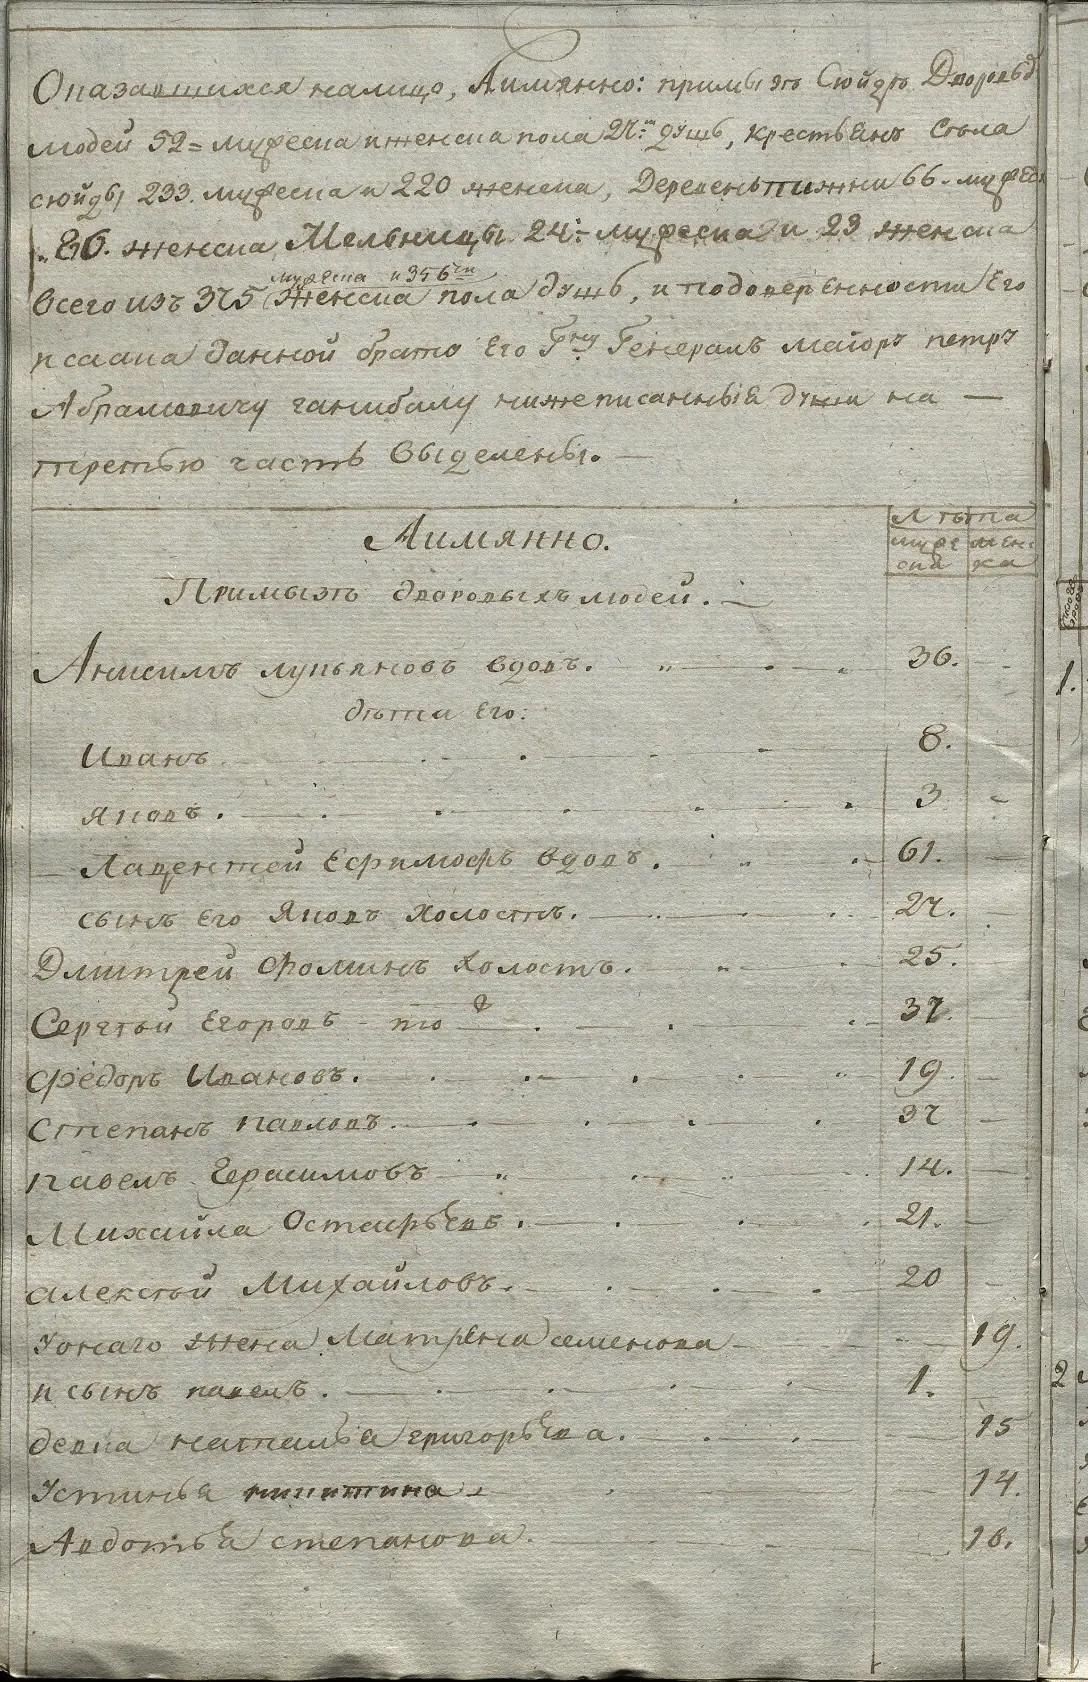 Оказавшихся налицо, Аимянно: примызѣ Сюйдѣ Дворовых
людей 52= мужеска и женска пола 27:ᵐ душъ, крестьянъ Села
сюйды 233. мужеска и 220 женска, Деревень пижни 66. мужеск
" 86. женска Мельницы 24:= мужеска и 23 женска
мужеска и 356ᵐⁱ
всего изъ 375 женска пола душъ, и подоверенности Его
писана данной брату его Гну Генералъ маiоръ петръ
Абрамовичу ганибалу нижеписанныiя души на —
третью часть выделены. —
Лѣта
Аимянно.
муже ска
жен ка
Примызѣ дворовыхъ людей. —
Анисимъ лукьяновъ вдовъ. 36.
дѣти Его:
Иванъ 8.
яковъ. 3
Лаврентей Ефимофъ вдовъ. 61.
сынъ его Яковъ холостъ. 27.
Дмитрей Фоминъ холостъ. 25.
Сергѣй Егоровъ - то ж 37.
Федоръ Ивановъ. 19.
Степанъ павловъ. 37
павелъ Герасимовъ 14.
Михайла Остафьевъ. 21.
алексѣй Михайловъ. 20
Уонаго жена Матрена семенова 19.
и сынъ павелъ. 1.
девка наталья григорьева. 15
Устинья никитина 14.
Авдотья степанова. 16.
1.
2